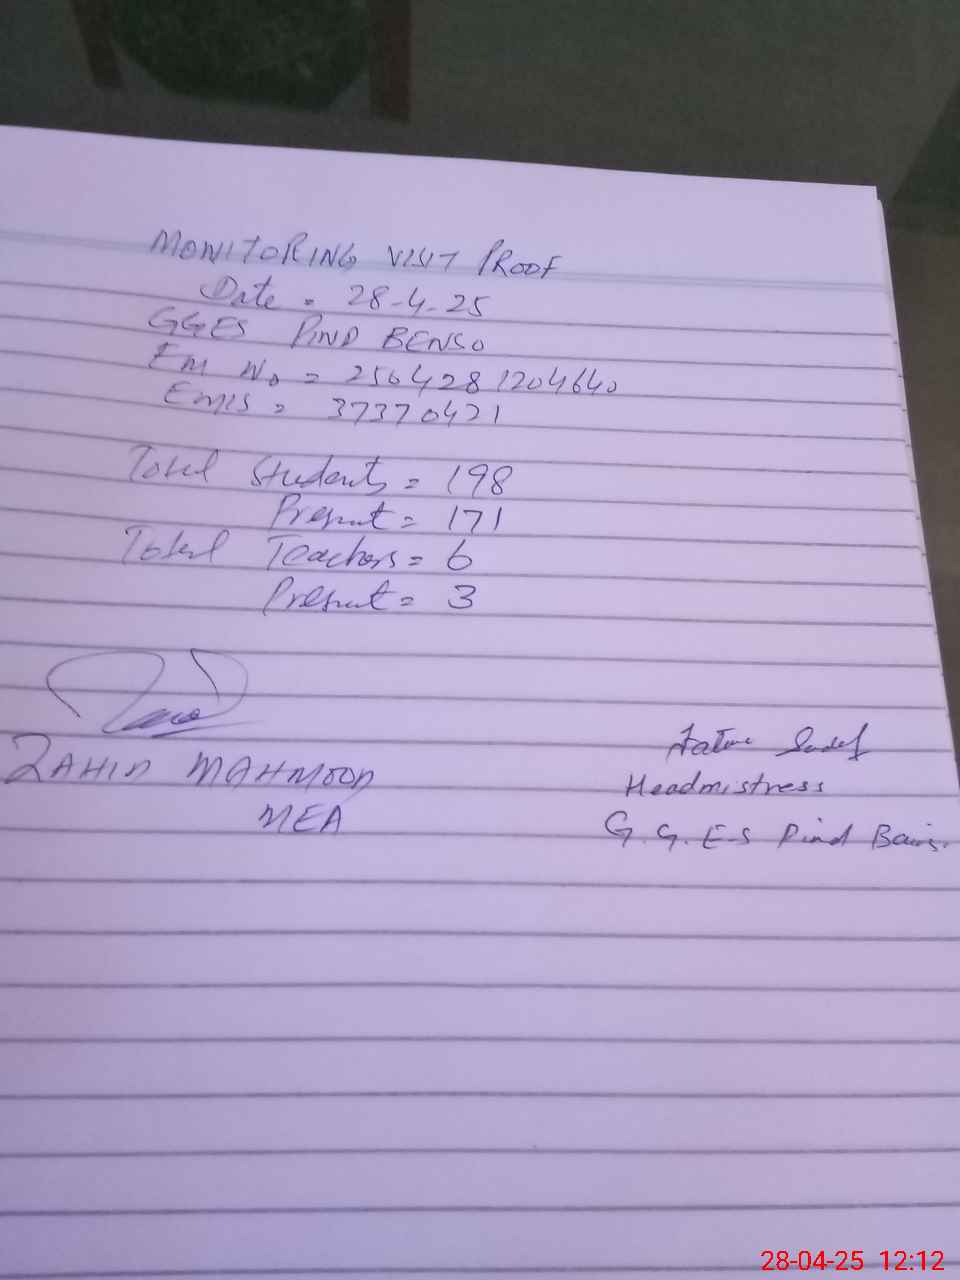 MONITORING VISIT PROOF
Date = 28-4-25
GGES PIND BENSO
EM No = 2564281204640
Emis = 37370421
Total Students = 198
Present = 171
Total Teachers = 6
Present = 3
ZAHID MAHMOOD
MEA
Headmistress
G.G.E-S Pind Bains.
28-04-25 12:12